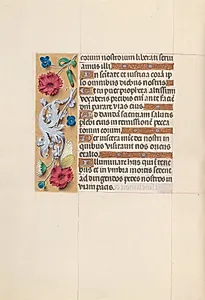 corum nostrorum liberati serui
amus illi
In sctitate et iusticia coram ip
so omnibus diebus nostris
Et tu puer propheta altissimi
vocaberis preibis enim ante facie
dni parare vias eius
Ad dandā scientiam salutis
plebi eius in remissionē pecca
torum eorum
Per viscera mīe dei nostri in
quibus visitauit nos oriens
ex alto
Illuminare his qui tene
bris et in vmbra mortis sedent
ad dirigendos pedes nostros in
viam pacis